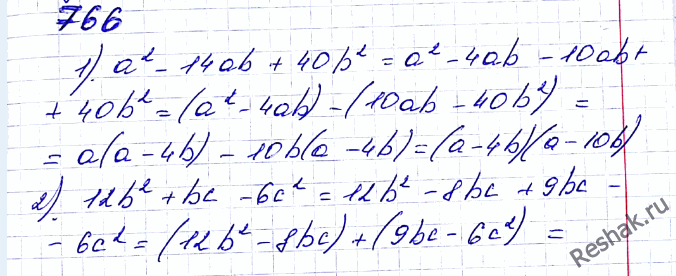 766
1). a² - 14ab + 40b² = a² - 4ab - 10ab +
+ 40b² = (a² - 4ab) - (10ab - 40b²) =
= a(a - 4b) - 10b(a - 4b) = (a - 4b)(a - 10b)
2). 12b² + bc - 6c² = 12b² - 8bc + 9bc -
- 6c² = (12b² - 8bc) + (9bc - 6c²) =
Reshak.ru